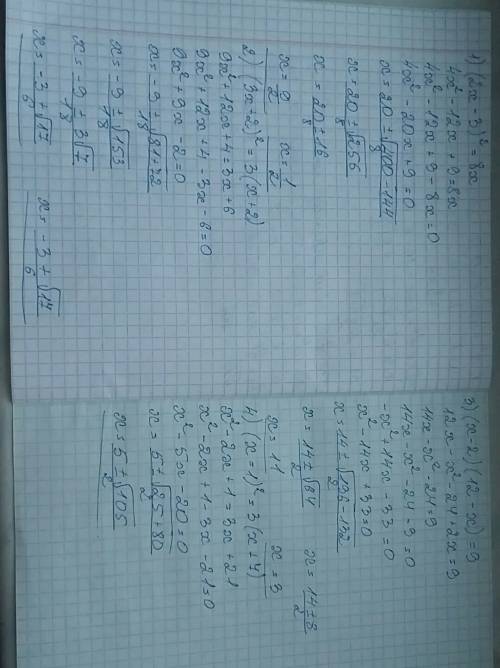 1) (2x-3)² = 8x
4x² - 12x + 9 = 8x
4x² - 12x + 9 - 8x = 0
4x² - 20x + 9 = 0
x = 20 ± √400-144 / 8
x = 20 ± √256 / 8
x = 20 ± 16 / 8
x = 9/2   x = 1/2
2) (3x+2)² = 3(x+2)
9x² + 12x + 4 = 3x + 6
9x² + 12x + 4 - 3x - 6 = 0
9x² + 9x - 2 = 0
x = -9 ± √81+72 / 18
x = -9 ± √153 / 18
x = -9 ± 3√17 / 18
x = -3 ± √17 / 6   x = -3 ± √17 / 6
3) (x-2)(12-x) = 9
12x - x² - 24 + 2x = 9
14x - x² - 24 = 9
14x - x² - 24 - 9 = 0
-x² + 14x - 33 = 0
x² - 14x + 33 = 0
x = 14 ± √196-132 / 2
x = 14 ± √64 / 2   x = 14 ± 8 / 2
x = 11   x = 3
4) (x-1)² = 3(x+7)
x² - 2x + 1 = 3x + 21
x² - 2x + 1 - 3x - 21 = 0
x² - 5x - 20 = 0
x = 5 ± √25+80 / 2
x = 5 ± √105 / 2